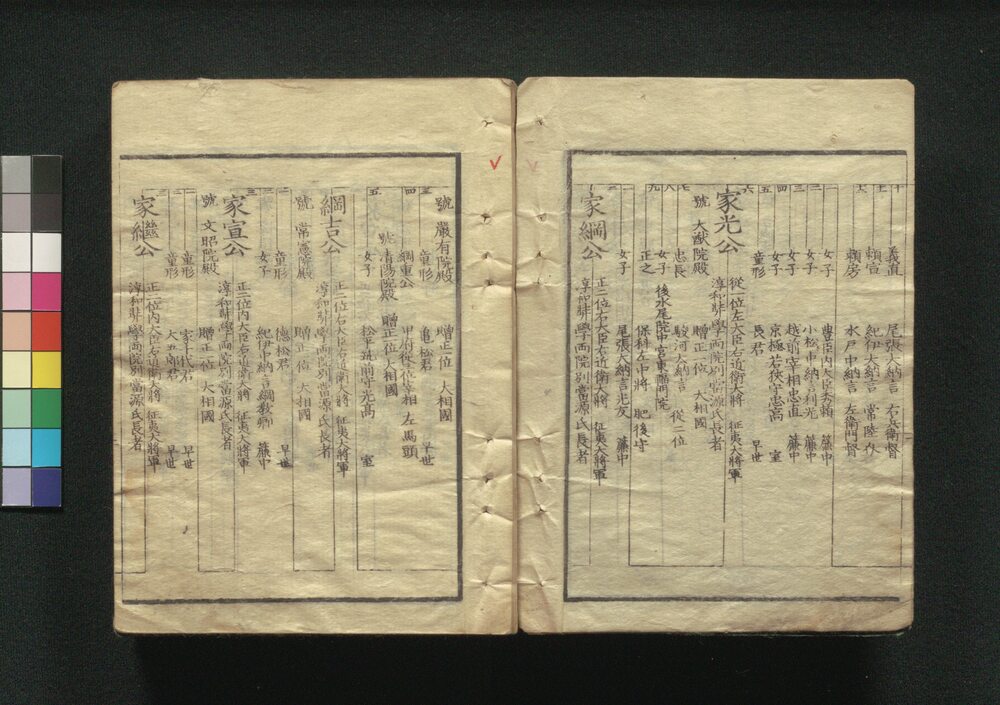 十 義直 尾張大納言 右兵衛督
十一 頼宣 紀伊大納言 常陸介
十二 頼房 水戸中納言 左衛門督
家光公 従一位左大臣右近衛大将 征夷大将軍
淳和弉學両院別當源氏長者
號 大猷院殿 贈正一位 大相國
一 女子 豊臣内大臣秀頼 簾中
二 女子 小松中納言利光 簾中
三 女子 越前宰相忠直 簾中
四 女子 京極若狭守忠高 室
五 童形 長君 早世
七 忠長 駿河大納言 従二位
八 女子 後水尾院中宮東福門院
九 正之 保科左中将 肥後守
女子 尾張大納言光友 簾中
家綱公 正二位右大臣右近衛大将 征夷大将軍
淳和弉學両院別當源氏長者
號 嚴有院殿 贈正一位 大相國
三 童形 亀松君 早世
四 綱重公 甲府従三位宰相 左馬頭
號 清陽院殿 贈正一位大相國
五 女子 松平筑前守光高 室
綱吉公 正二位右大臣右近衛大将 征夷大将軍
淳和弉學両院別當源氏長者
號 常憲院殿 贈正一位 大相國
童形 徳松君 早世
女子 紀伊中納言綱教卿 簾中
家宣公 正二位内大臣右近衛大将 征夷大将軍
淳和弉學両院別當源氏長者
號 文昭院殿 贈正一位 大相國
童形 家千代君 早世
童形 大五郎君 早世
家繼公 正二位内大臣右近衛大将 征夷大将軍
淳和弉學両院別當源氏長者